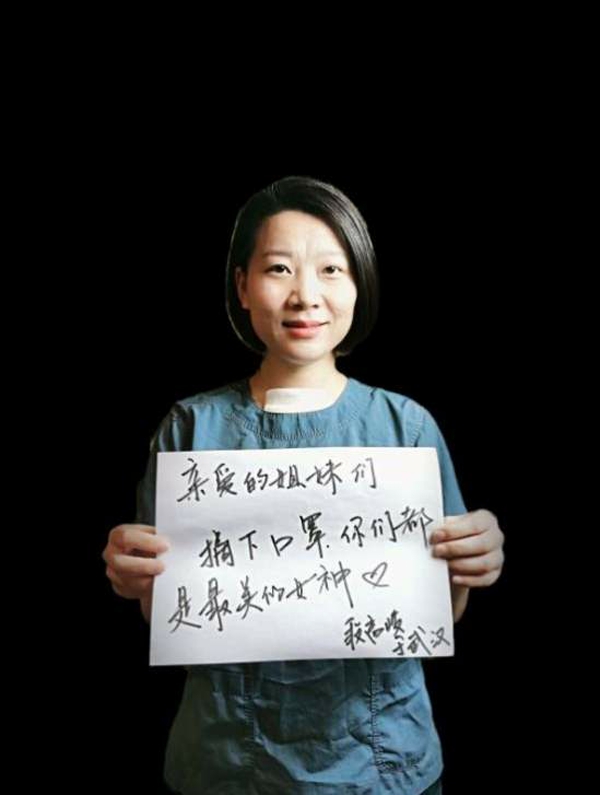 亲爱的姐妹们
摘下口罩,你们都
是最美的女神♡
于武汉